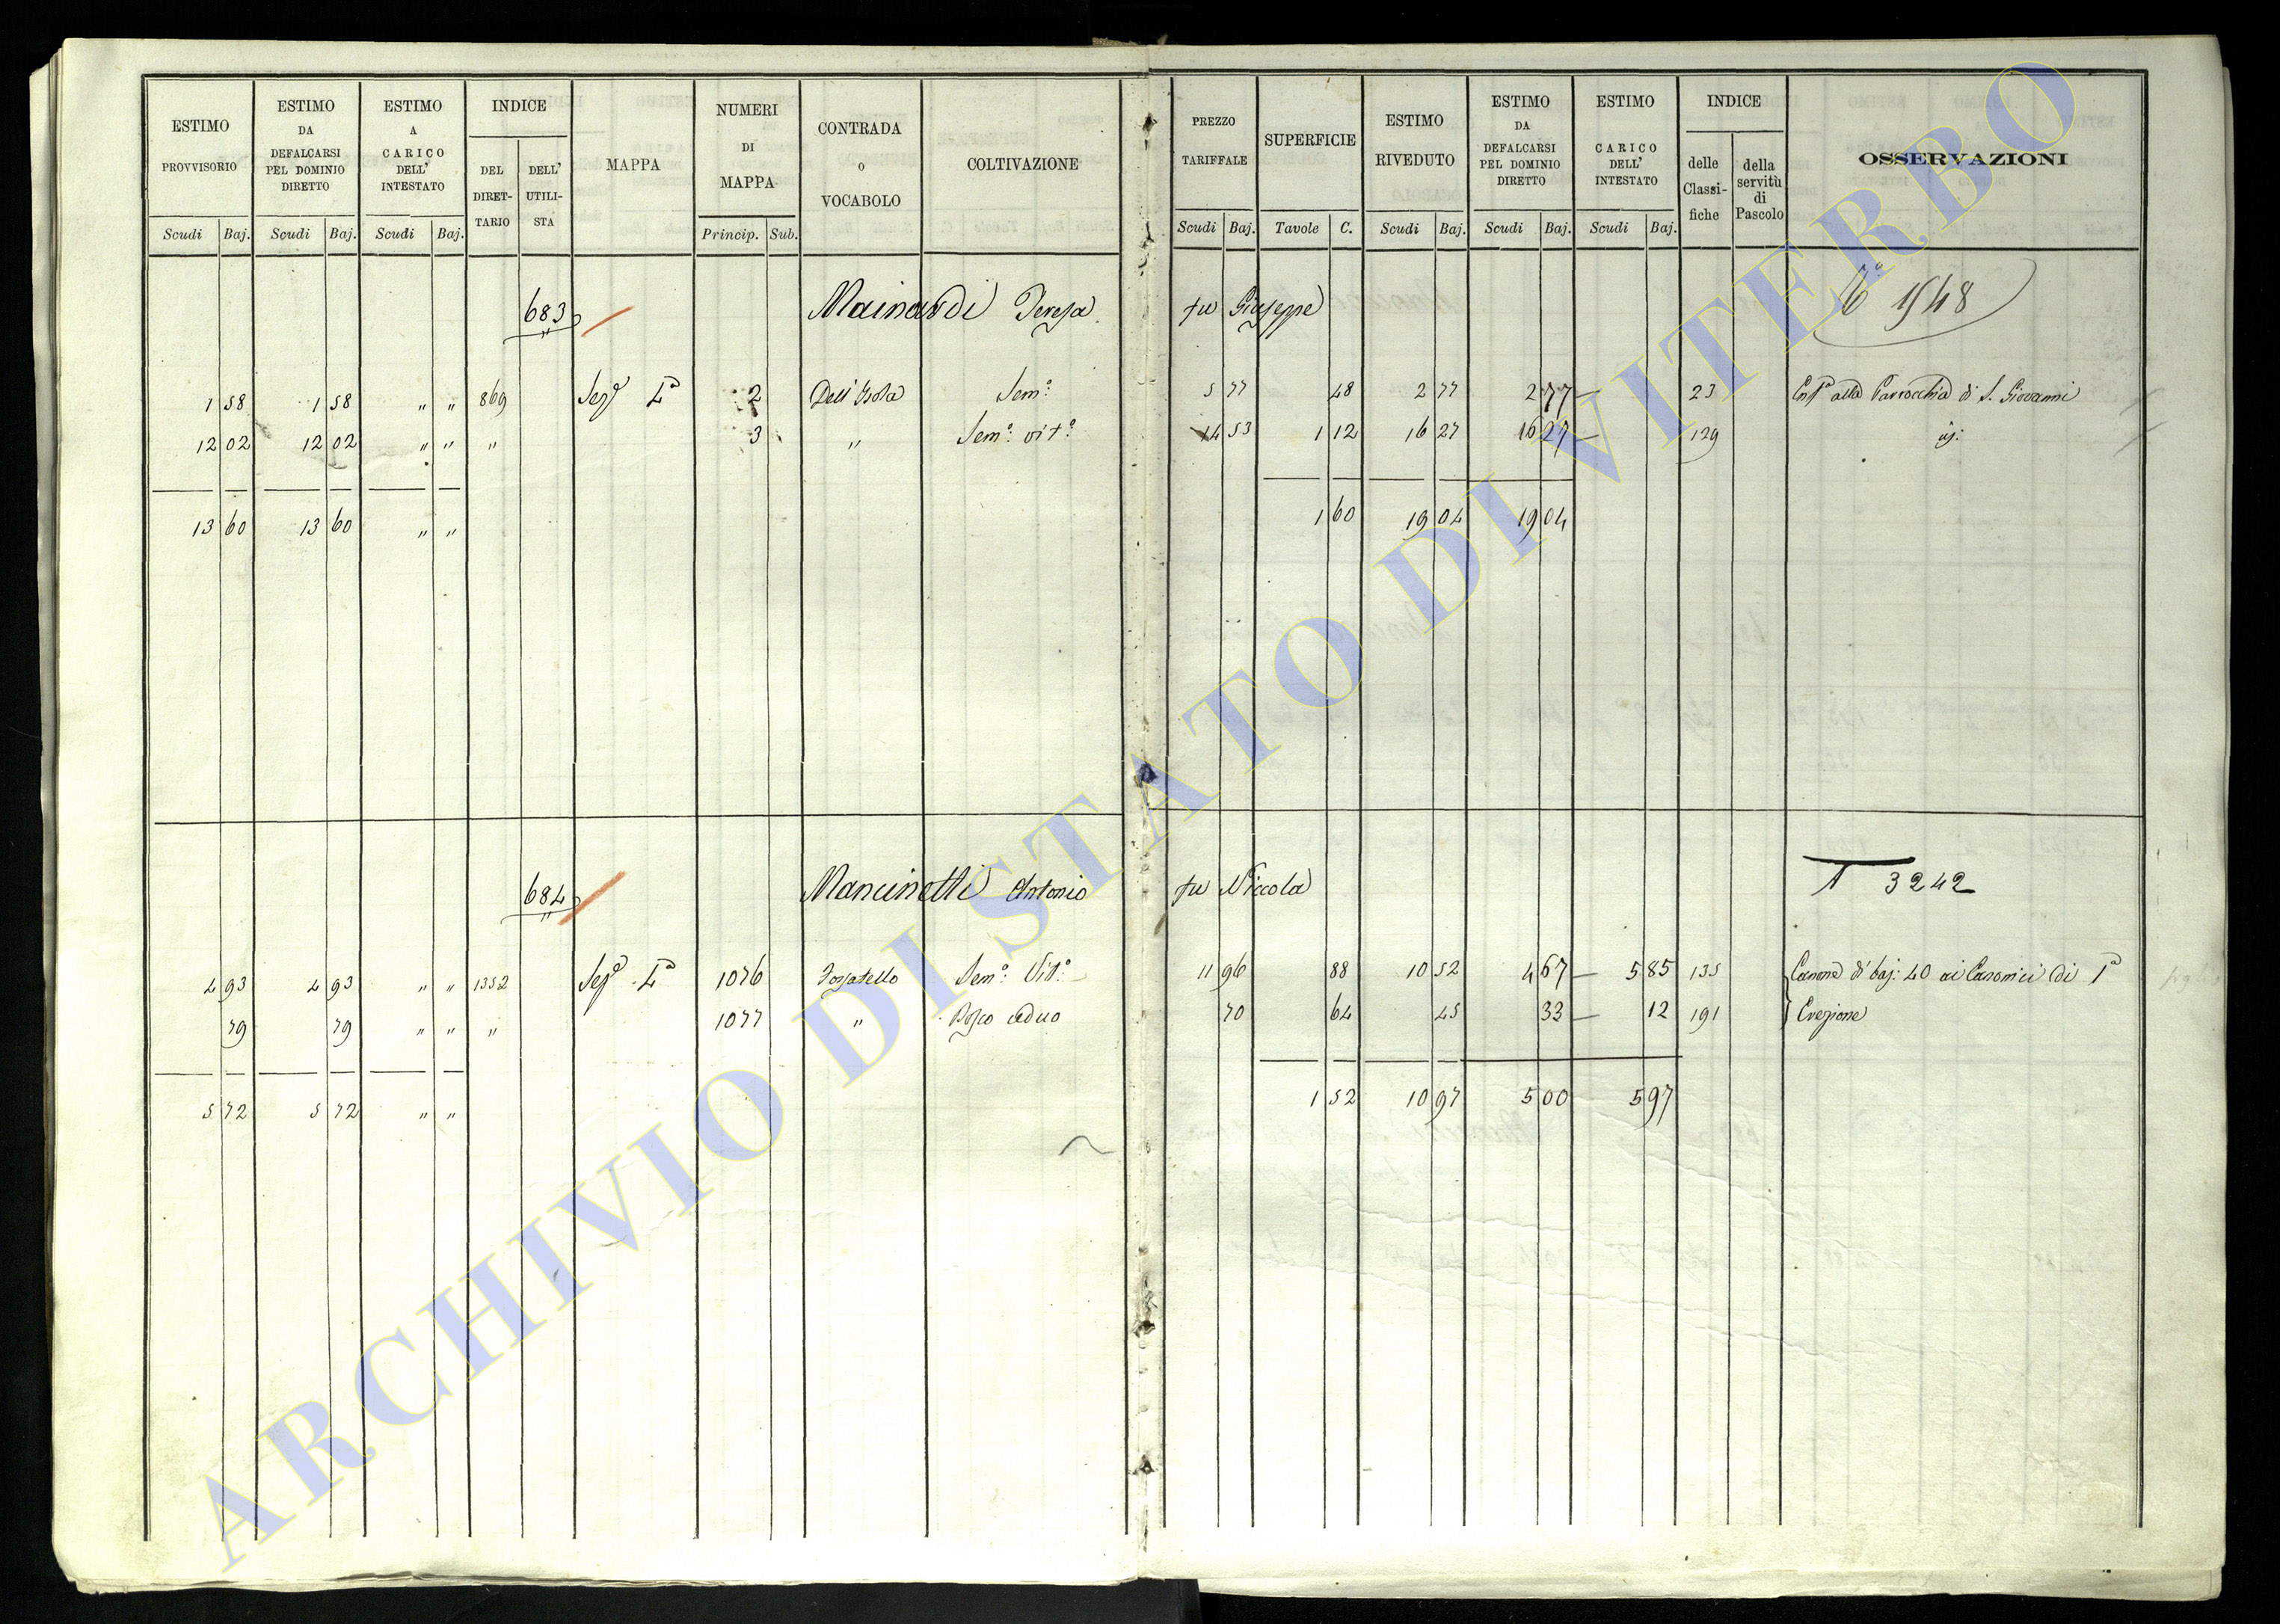 ESTIMO PROVVISORIO Scudi Baj.
ESTIMO DA DEFALCARSI PEL DOMINIO DIRETTO Scudi Baj.
ESTIMO A CARICO DELL' INTESTATO Scudi Baj.
INDICE DEL DIRET- TARIO DELL' UTILI- STA
MAPPA
NUMERI DI MAPPA Princip. Sub.
CONTRADA o VOCABOLO
COLTIVAZIONE
PREZZO TARIFFALE Scudi Baj.
SUPERFICIE Tavole C.
ESTIMO RIVEDUTO Scudi Baj.
ESTIMO DA DEFALCARSI PEL DOMINIO DIRETTO Scudi Baj.
ESTIMO A CARICO DELL' INTESTATO Scudi Baj.
INDICE delle Classi- fiche della servitù di Pascolo
OSSERVAZIONI
683 Mainardi Teresa fu Giuseppe 1548
1 58 1 58 " " 869 Sez.e I.a 2 Dell'Isola Sem.o 5 77 48 2 77 2 77 — 23 alla Parrocchia di S. Giovanni
12 02 12 02 " " " 3 " Sem.o vit.o 14 53 1 12 16 27 16 27 — 129
13 60 13 60 " " 1 60 19 04 19 04
684 Mancinetti Antonio fu Niccola T 3242
4 93 4 93 " " 1352 Sez.e I.a 1076 Fossatello Sem.o Vit.o 11 96 88 10 52 4 67 — 5 85 135 Canone di baj: 40 ai Canonici di I.a
79 79 " " " 1077 " Bosco ceduo 70 64 45 33 — 12 191 Erezione
5 72 5 72 " " 1 52 10 97 5 00 5 97
ARCHIVIO DI STATO DI VITERBO